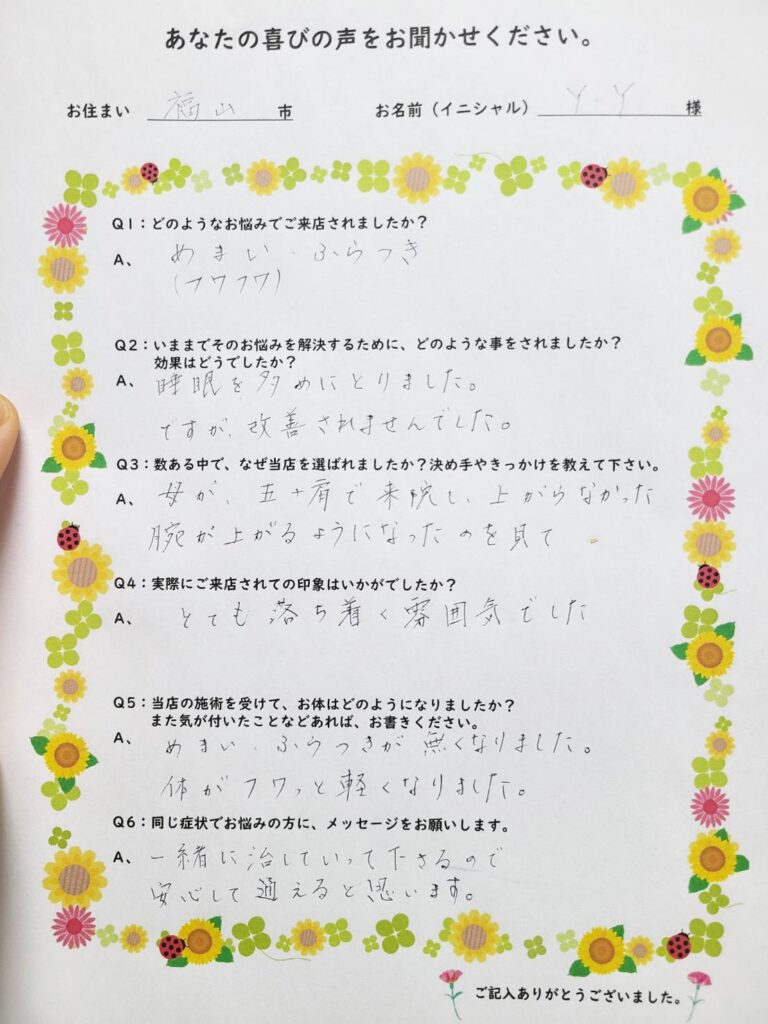 あなたの喜びの声をお聞かせください。
お住まい 福山 市 お名前（イニシャル） Y.Y 様
Q1：どのようなお悩みでご来店されましたか？
A、 めまい、ふらつき
(フワフワ)
Q2：いままでそのお悩みを解決するために、どのような事をされましたか？
効果はどうでしたか？
A、 睡眠を多めにとりました。
ですが、改善されませんでした。
Q3：数ある中で、なぜ当店を選ばれましたか？決め手やきっかけを教えて下さい。
A、 母が、五十肩で来院し、上がらなかった
腕が上がるようになったのを見て
Q4：実際にご来店されての印象はいかがでしたか？
A、 とても落ち着く雰囲気でした
Q5：当店の施術を受けて、お体はどのようになりましたか？
また気が付いたことなどあれば、お書きください。
A、 めまい、ふらつきが無くなりました。
体がフワっと軽くなりました。
Q6：同じ症状でお悩みの方に、メッセージをお願いします。
A、 一緒に治していって下さるので
安心して通えると思います。
ご記入ありがとうございました。